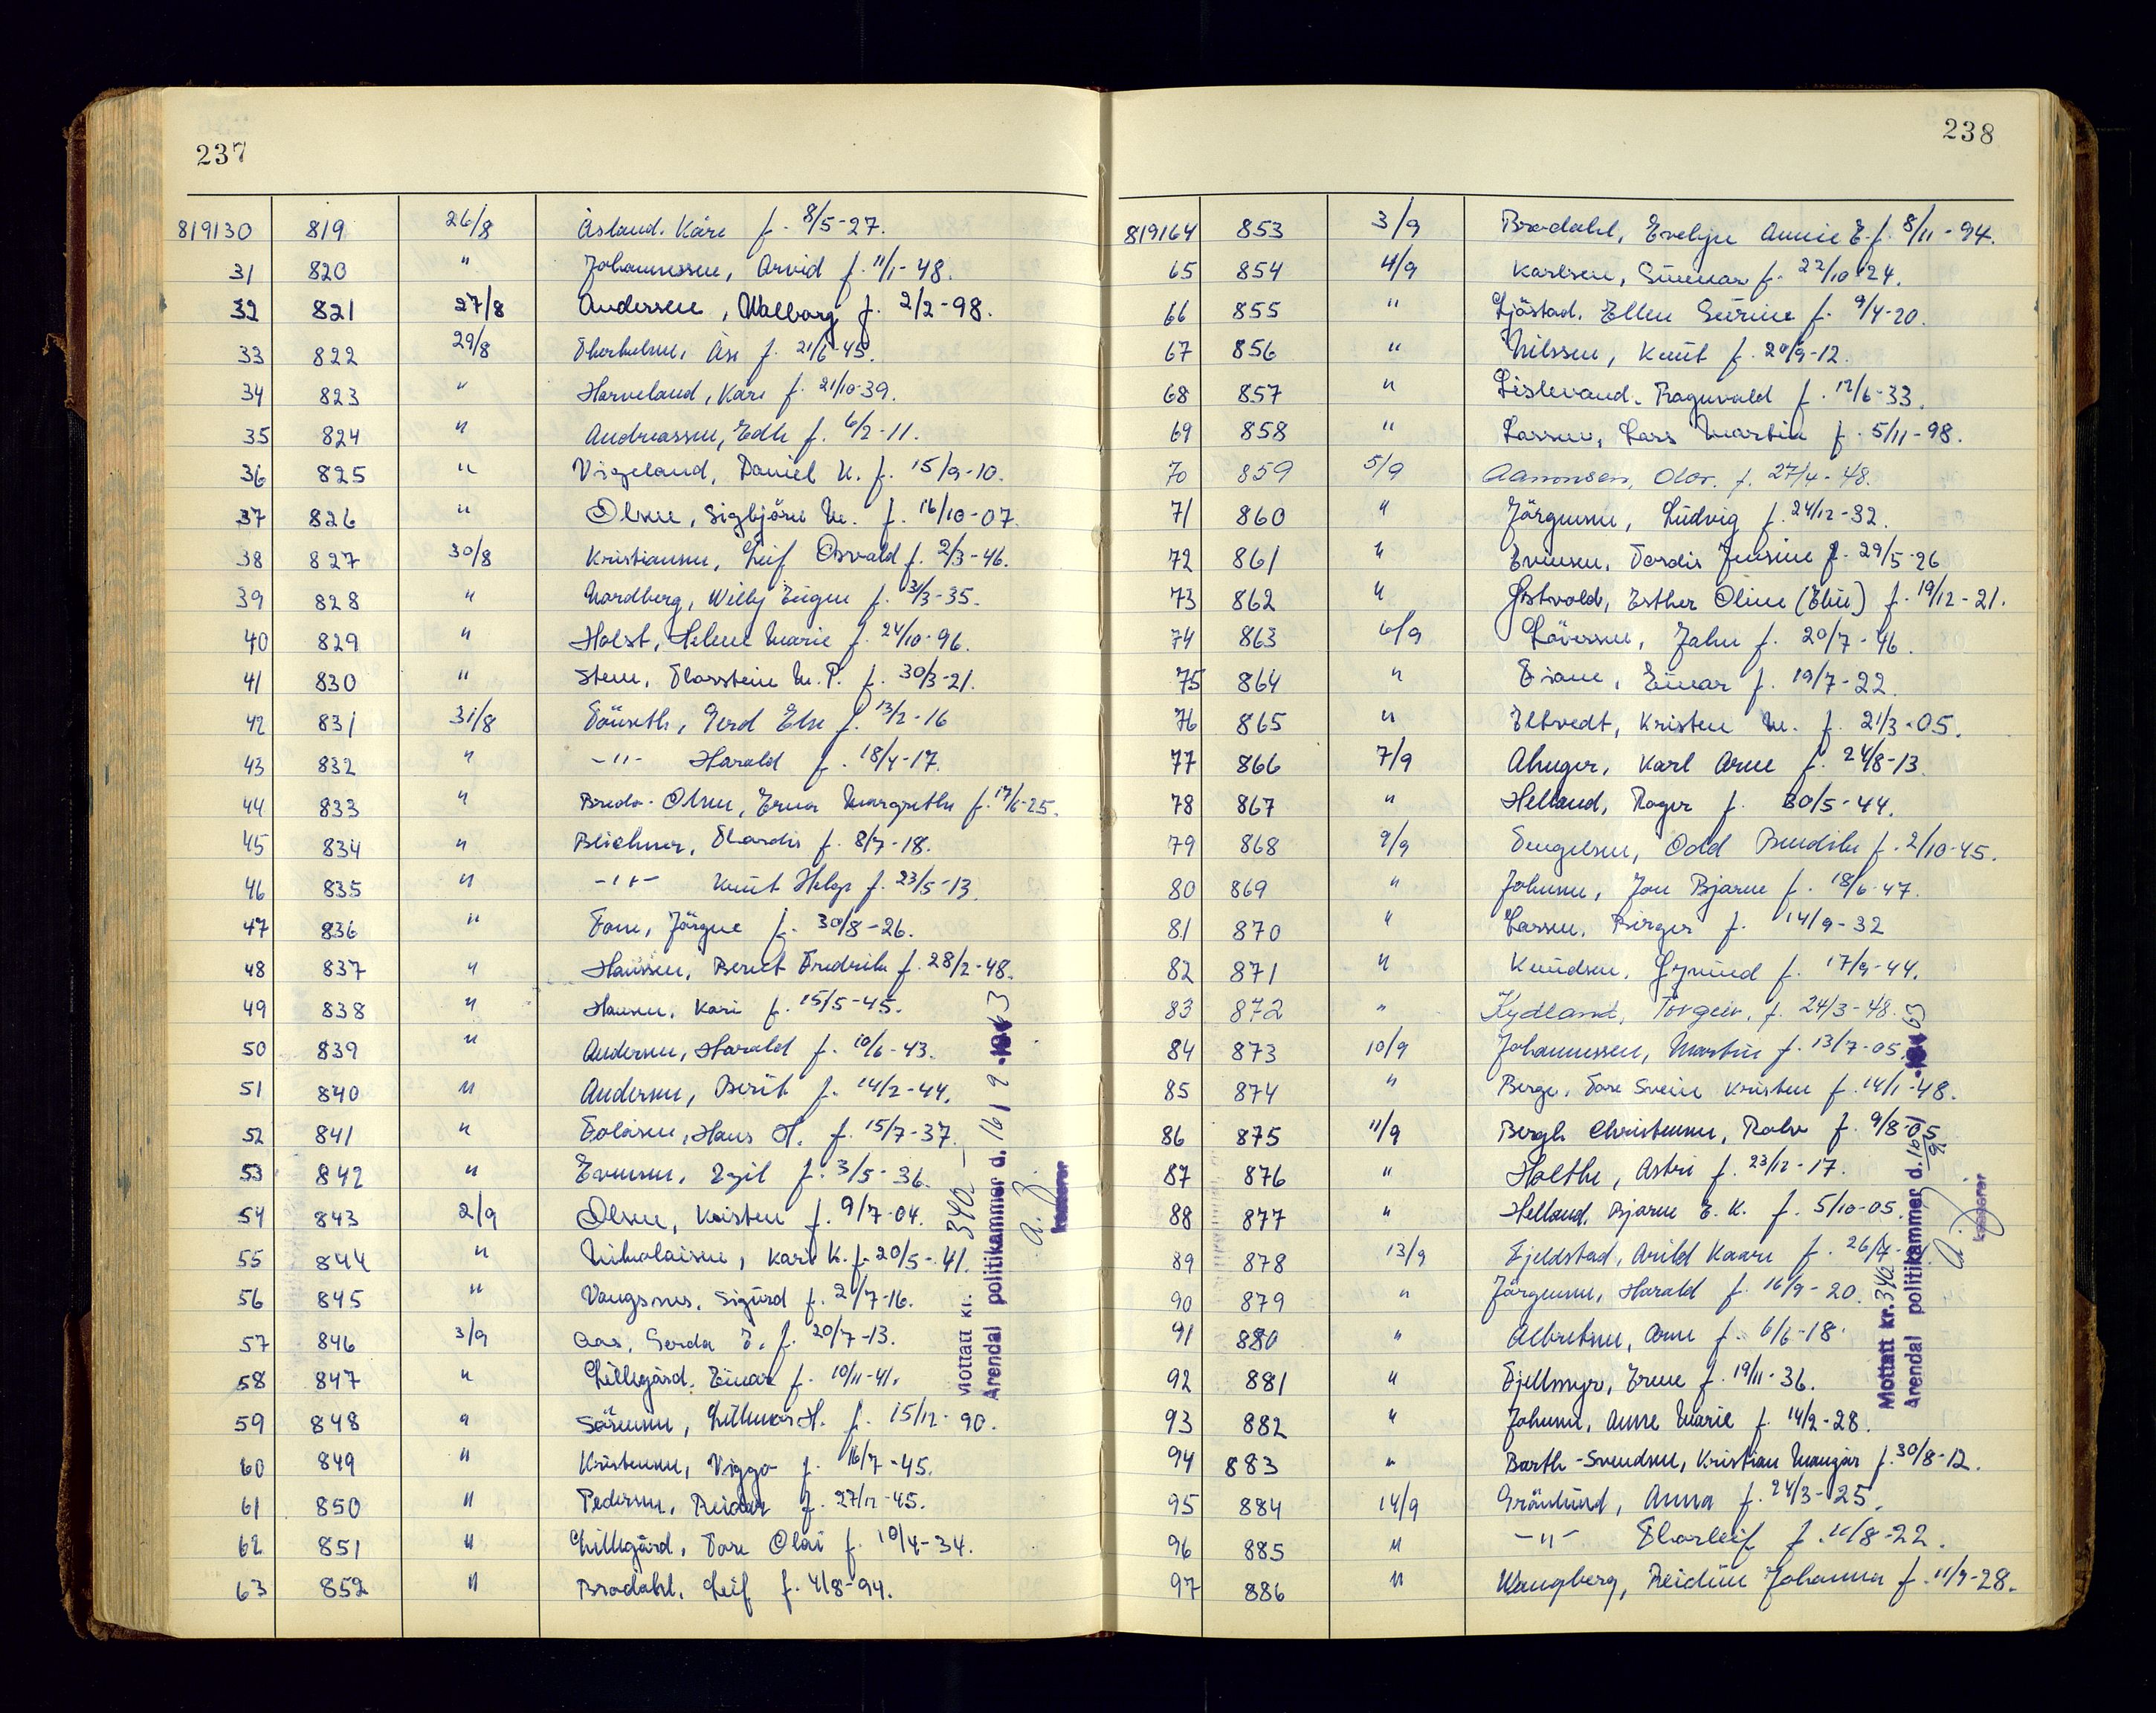 237
819130 819 26/8 Åsland. Kåre f. 8/5-27.
31 820 " Johannessen, Arvid f. 11/1-48.
32 821 27/8 Andersen, Walborg f. 2/2-98.
33 822 29/8 Åse f. 21/6-45.
34 823 " Harveland, Kåre f. 21/10-39.
35 824 " Andreassen, Edle f. 6/2-11.
36 825 " Vigeland, Daniel K. f. 15/9-10.
37 826 " Olsen, Sigbjörn M. f. 16/10-07.
38 827 30/8 Kristiansen, Leif Osvald f. 2/3-46.
39 828 " Nordberg, Willy Eugen f. 31/3-35.
40 829 " Holst, Helene Marie f. 24/10-96.
41 830 " Steen, Thorstein M. P. f. 30/3-21.
42 831 31/8 Gerd Else f. 13/2-16
43 832 " -"- Harald f. 18/4-17.
44 833 " Breda-Olsen, Erna Margrethe f. 17/6-25.
45 834 " Blichner, Thordis f. 8/7-18.
46 835 " -"- Knut Helge f. 23/5-13.
47 836 " Foss, Jörgen f. 30/8-26.
48 837 " Hansen, Bernt Fredrik f. 28/2-48.
49 838 " Hansen, Kari f. 15/5-45.
50 839 " Andersen, Harald f. 10/6-43.
51 840 " Andersen, Berit f. 14/2-44.
52 841 " Tobiasen, Hans H. f. 15/7-37.
53 842 " Evensen, Egil f. 3/5-36.
54 843 2/9 Olsen, Kristen f. 9/7-04.
55 844 " Nikolaisen, Kari K. f. 20/5-41.
56 845 " Vangsnes, Sigurd f. 2/7-16.
57 846 3/9 Aas, Gerda E. f. 20/7-13.
58 847 " Lillegård, Einar f. 10/11-41.
59 848 " Sörensen, H. f. 15/12-90.
60 849 " Kristensen, Viggo f. 16/7-45.
61 850 " Pedersen, Reidar f. 27/12-45.
62 851 " Lillegård, Tore Olai f. 10/4-34.
63 852 " Brodahl, Leif f. 4/8-94.
Mottatt kr. 340.-
Arendal politikammer d. 16/9 1963
kasserer
238
819164 853 3/9 Brodahl, Evelyn Annie E. f. 8/11-94.
65 854 4/9 Karlsen, Gunnar f. 22/10-24.
66 855 " Ljöstad, Ellen Gurine f. 9/4-20.
67 856 " Nilssen, Knut f. 29/9-12.
68 857 " Lislevand, Ragnvald f. 12/6-33.
69 858 " Larsen, Lars Martin f. 5/11-98.
70 859 5/9 Aamonsen, Olav. f. 27/4-48.
71 860 " Jörgensen, Ludvig f. 24/12-32.
72 861 " Evensen, Tordis Jensine f. 29/5-26
73 862 " Östvold, Esther Oline (Elin) f. 19/12-21.
74 863 6/9 John f. 20/7-46.
75 864 " Fiane, Einar f. 19/7-22.
76 865 " Eltvedt, Kristen M. f. 21/3-05.
77 866 7/9 Alunger, Karl Arne f. 24/8-13.
78 867 " Helland, Roger f. 30/5-44.
79 868 9/9 Tengelsen, Odd Bendik f. 2/10-45.
80 869 " Johnsen, Jon Bjarne f. 18/6-47.
81 870 " Larsen, Birger f. 14/9-32
82 871 " Knudsen, Gymund f. 17/9-44.
83 872 " Kydland, Torgeir, f. 24/3-48.
84 873 10/9 Johannessen, Martin f. 13/7-05.
85 874 " Berge, Tore Svein Kristen f. 14/1-48.
86 875 11/9 Bergh Christensen, Rolv f. 9/8-05
87 876 " Holthe, Astri f. 23/12-17.
88 877 " Helland, Bjarne E. K. f. 5/10-05.
89 878 13/9 Fjeldstad, Arild Kaare f. 26/7-
90 879 " Jörgensen, Harald f. 16/9-20.
91 880 " Albretsen, Arne f. 6/6-18.
92 881 " Fjellmyr, Erna f. 19/11-36.
93 882 " Johnsen, Anne Marie f. 14/2-28.
94 883 " Barth-Svendsen, Kristian f. 30/8-12.
95 884 14/9 Grönlund, Anna f. 24/3-25.
96 885 " -"- Thorleif f. 11/8-22.
97 886 " Wangberg, Reidun Johanna f. 11/9-28.
Mottatt kr. 340
Arendal politikammer d. 16/9 1963
kasserer